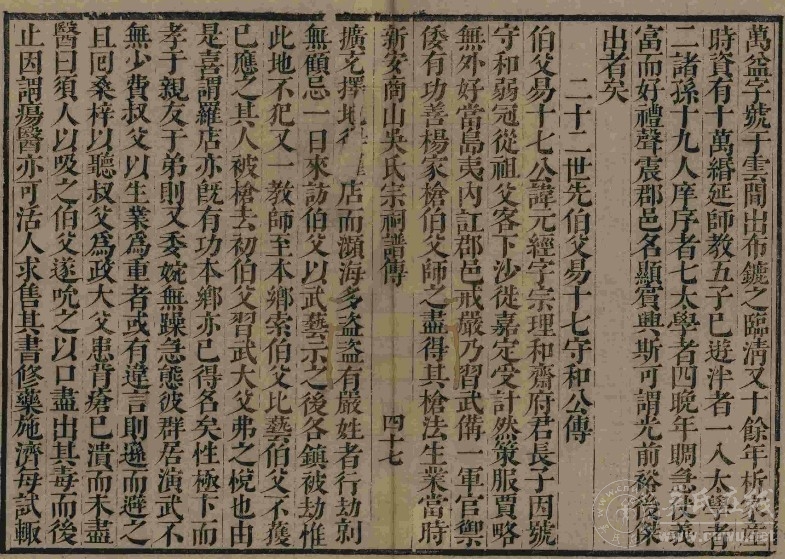 萬益字號于雲間出布鏕之臨清又十餘年析產
時資有十萬緡延師教五子已遊泮者一入太學者
二諸孫十九人庠序者七太學者四晚年賙急仗義
富而好禮聲震郡邑名顯賓興斯可謂光前裕後傑
出者矣
二十二世先伯父易十七守和公傳
伯父易十七公諱元經字宗理和齋府君長子因號
守和弱冠從祖父客下沙徙嘉定受計然策服賈略
無外好當島夷內訌郡邑戒嚴乃習武備一軍官禦
倭有功善楊家槍伯父師之盡得其槍法生業當時
新安商山吳氏宗祠譜傳
四十七
擴充擇地 店而瀕海多盜盜有嚴姓者行劫剽
無顧忌一日來訪伯父以武藝示之後各鎮被劫惟
此地不犯又一教師至本鄉索伯父比藝伯父不獲
已應之其人被槍去初伯父習武大父弗之悅也由
是喜謂羅店亦既有功本鄉亦已得名矣性極下而
孝于親友于弟則又委婉無躁急態彼群居演武不
無少費叔父以生業為重者或有違言則遜而避之
且囘桑梓以聽叔父爲政大父患背瘡已潰而未盡
醫曰須人以吸之伯父遂吮之以口盡出其毒而後
止因謂瘍醫亦可活人求售其書修藥施濟每試輙